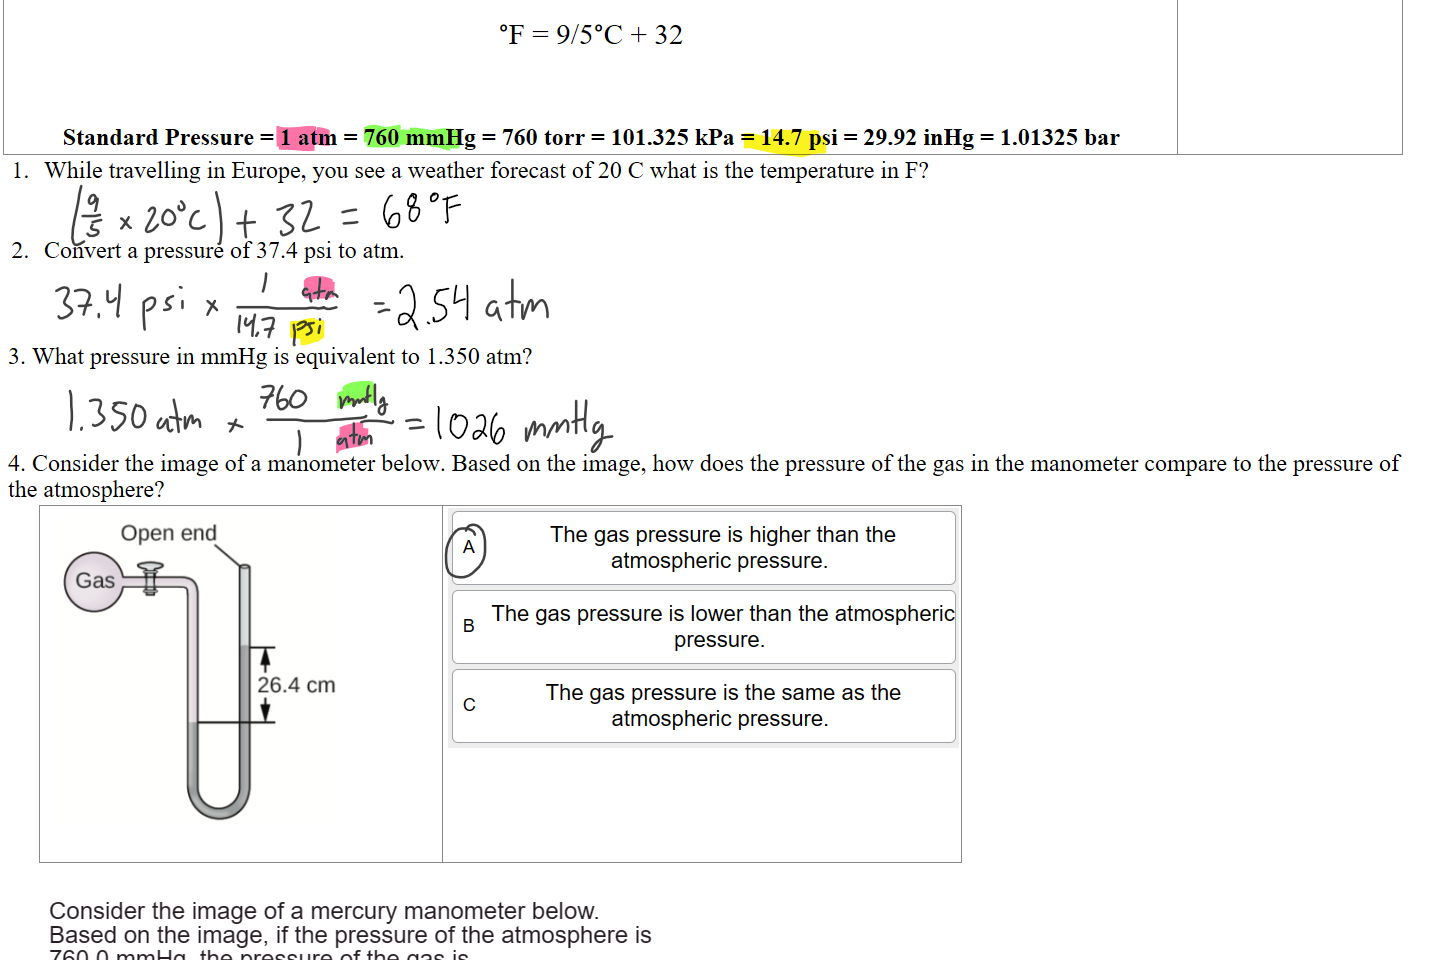 °F = 9/5°C + 32
Standard Pressure = 1 atm = 760 mmHg = 760 torr = 101.325 kPa = 14.7 psi = 29.92 inHg = 1.01325 bar
1. While travelling in Europe, you see a weather forecast of 20 C what is the temperature in F?
(9/5 × 20°C) + 32 = 68°F
2. Convert a pressure of 37.4 psi to atm.
37.4 psi × 1 atm / 14.7 psi = 2.54 atm
3. What pressure in mmHg is equivalent to 1.350 atm?
1.350 atm × 760 mmHg / 1 atm = 1026 mmHg
4. Consider the image of a manometer below. Based on the image, how does the pressure of the gas in the manometer compare to the pressure of
the atmosphere?
Open end
Gas
26.4 cm
A The gas pressure is higher than the
atmospheric pressure.
B The gas pressure is lower than the atmospheric
pressure.
C The gas pressure is the same as the
atmospheric pressure.
Consider the image of a mercury manometer below.
Based on the image, if the pressure of the atmosphere is
760.0 mmHg, the pressure of the gas is